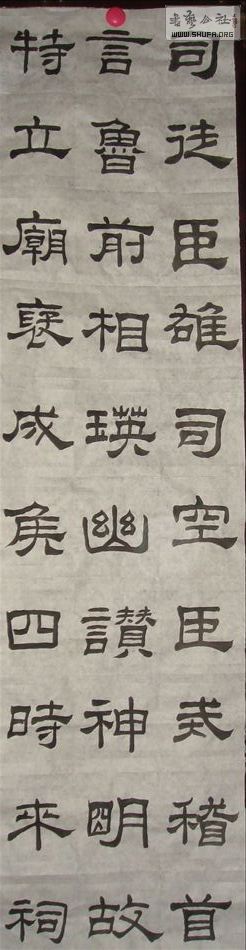 司徒臣雄司空臣戒稽首
言魯前相瑛幽讃神朙故
特立廟褒成侯四時來祠
WWW.SHUFA.ORG